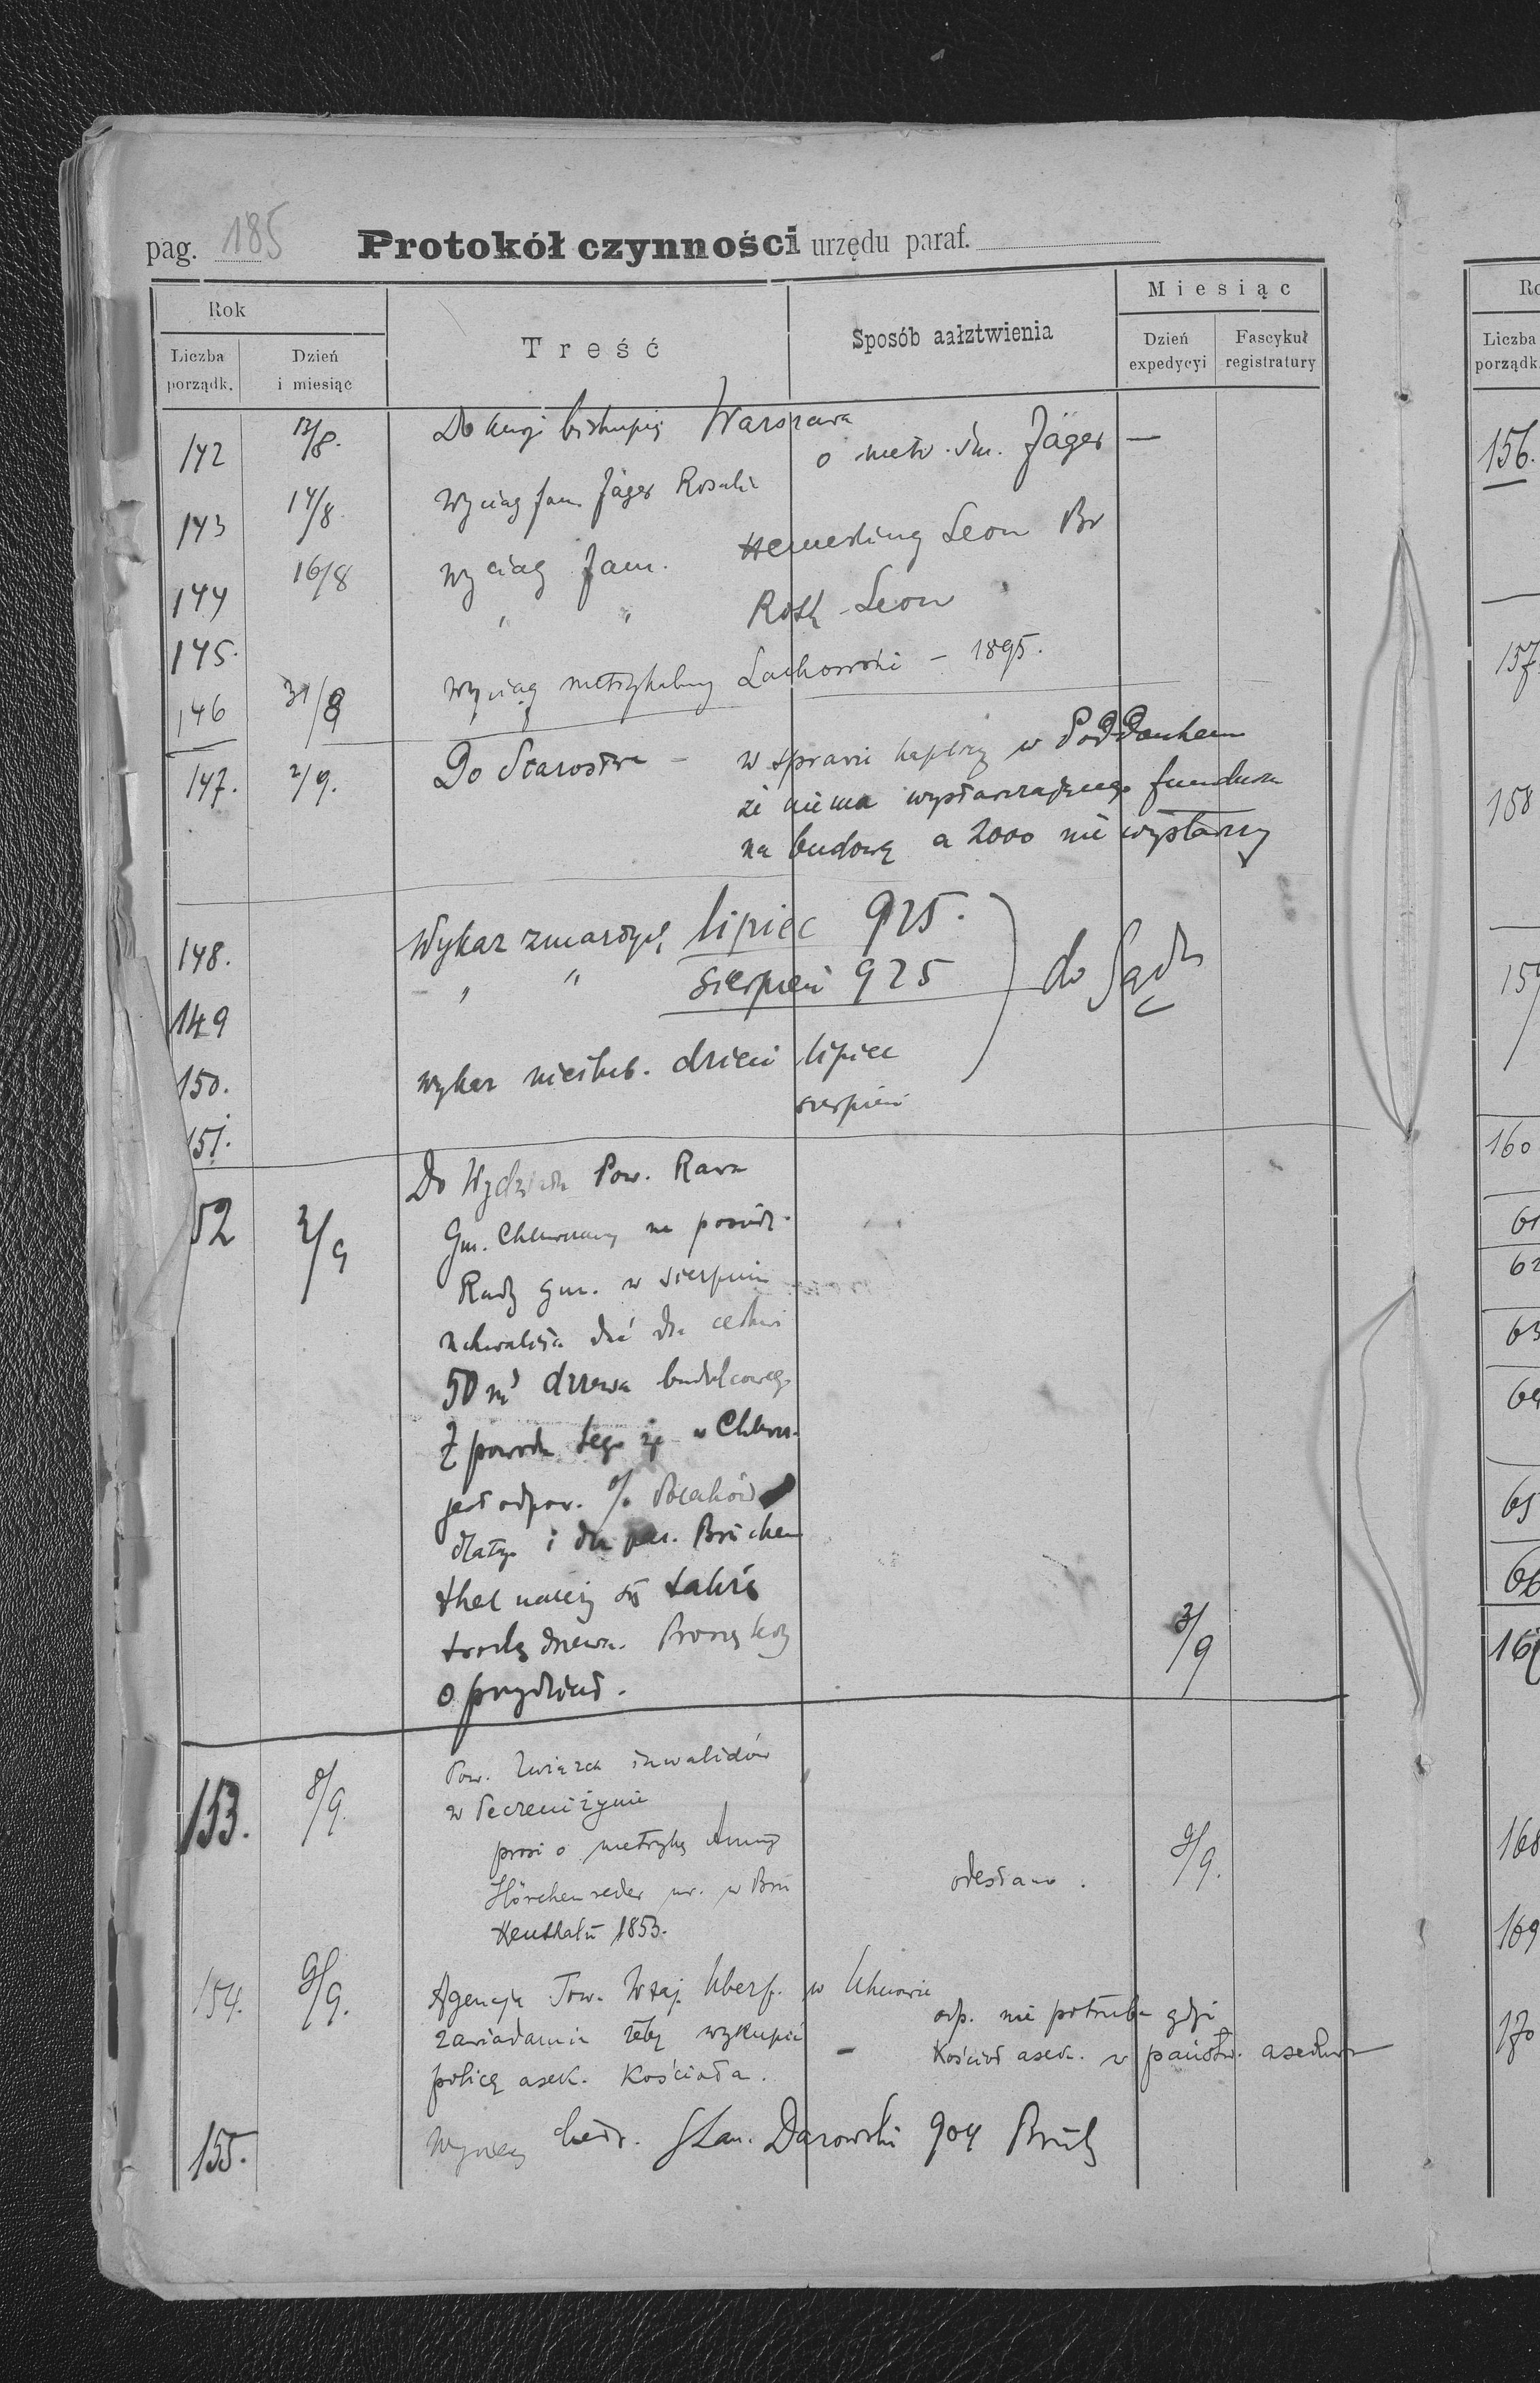 pag. 185 Protokół czynności urzędu paraf.
Rok
Liczba porządk.
Dzień i miesiąc
Treść
Sposób aałztwienia
Miesiąc
Dzień expedycyi
Fascykuł registratury
142 12/8. Do kurji biskupiej Warszawa
o metr. śm. Jäger —
143 14/8 Wyciąg fam. Jäger Rosalie
144 16/8 Wyciąg fam. Hemerling Leon Br
145. " " Roth Leon
146 31/8 Wyciąg metrykalny Lachowski – 1895.
147. 2/9. Do Starostwa – w sprawie kaplicy w
że niema wystarczającego funduszu
na budowę a 2000 nie wystarczy
148. Wykaz zmarłych lipiec 925.
149 " " sierpień 925 do Sądu
150. wykaz nieślub. dzieci lipiec
151. sierpień
152 2/9 Do Wydziału Pow. Rawa
Gm. na posiedz.
Rady gm. w sierpniu
uchwaliła dać dla cerkwi
50 m³ drzewa budulcowego
Z powodu tego iż w
jest odpow. % Polaków
dlatego i dla par. Brücken
thal należy się także
trochę drzewa. Proszę
o przydział. 3/9
153. 8/9. Pow. Związek inwalidów
w Peczeniżynie
prosi o metrykę Anny
ur. w Brü
kenthalu 1853. odesłano. 9/9.
154. 9/9. Agencja Tow. Wzaj. Ubezp. w Uhnowie
zawiadamia żeby wykupić
policę asek. Kościoła.
– odp. nie potrzeba gdyż
Kościół asek. w państw.
155. Stan. Darowski 904
Ro
Liczba
porządk.
156.
157.
158
159
160
61
62
63
64
65
66
168
169
170